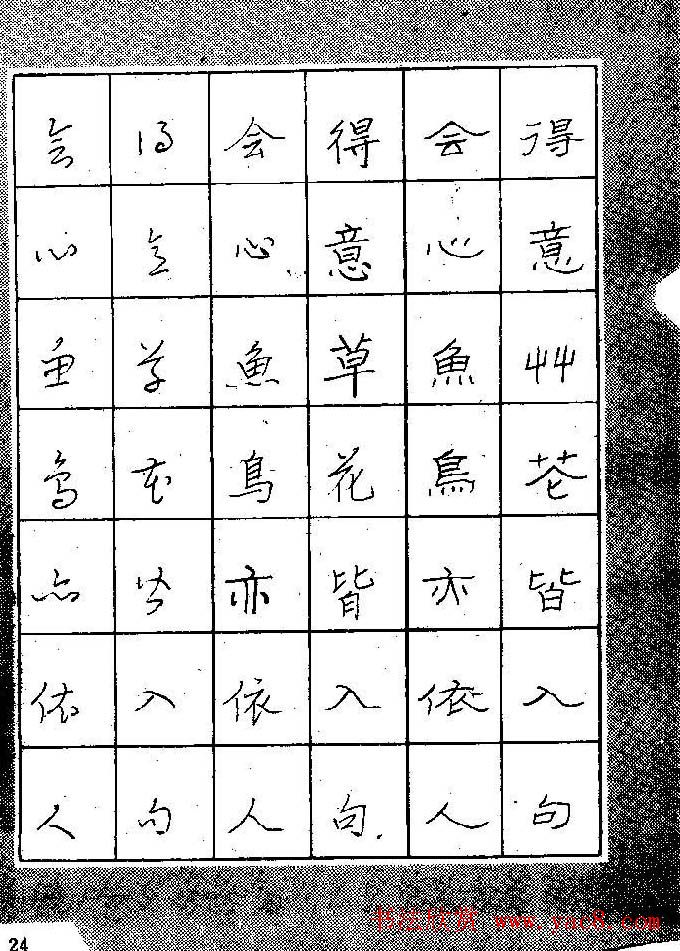 得意艸花皆入句
会心魚鳥亦依人
得意草花皆入句
会心魚鳥亦依人
得意草花皆入句
会心魚鳥亦依人
24
书法欣赏 www.yac8.com